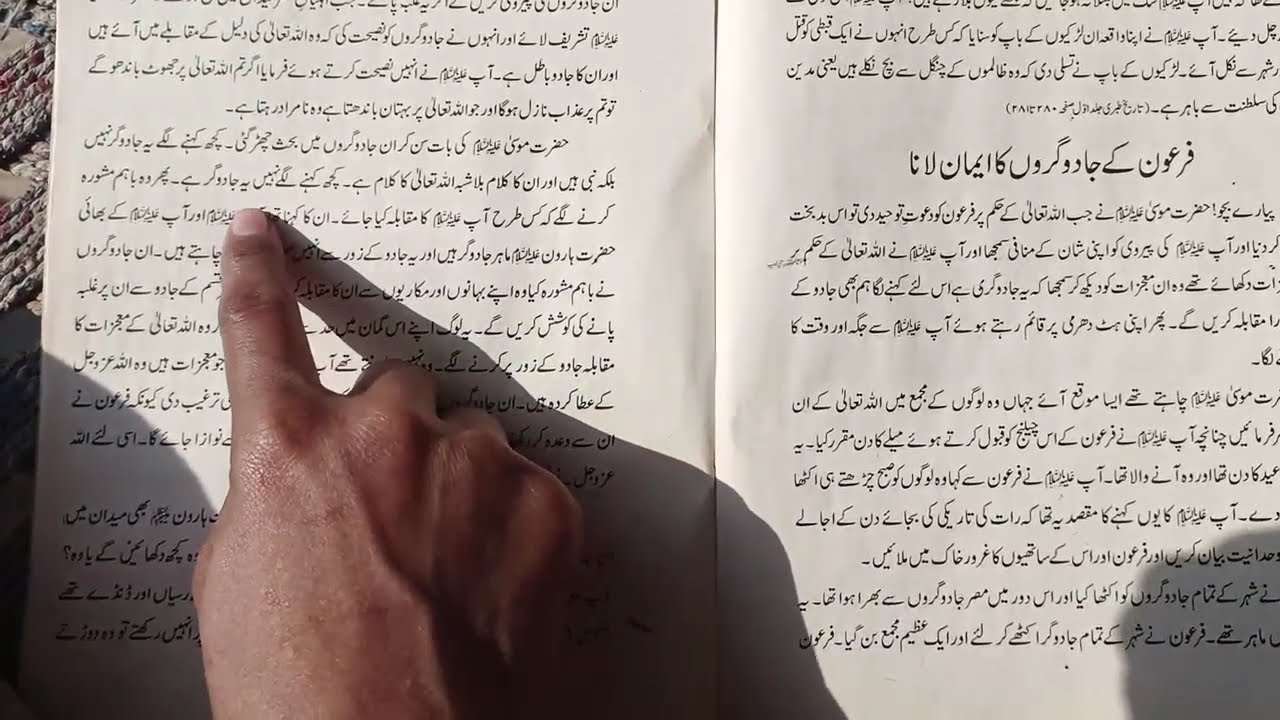 چل دیئے۔ آپ علیہ السلام نے اپنا واقعہ ان لڑکیوں کے باپ کو سنایا کہ کس طرح انہوں نے ایک قبطی کو قتل
شہر سے نکل آئے۔ لڑکیوں کے باپ نے تسلی دی کہ وہ ظالموں کے چنگل سے بچ نکلے ہیں یعنی مدین
کی سلطنت سے باہر ہے۔ (تاریخ طبری جلد اوّل صفحہ ۲۸۰ تا ۲۸۱)
فرعون کے جادوگروں کا ایمان لانا
پیارے بچو! حضرت موسیٰ علیہ السلام نے جب اللہ تعالیٰ کے حکم پر فرعون کو دعوتِ توحید دی تو اس بدبخت
کر دنیا اور آپ علیہ السلام کی پیروی کو اپنی شان کے منافی سمجھا اور آپ علیہ السلام نے اللہ تعالیٰ کے حکم پر
دکھائے تھے وہ ان معجزات کو دیکھ کر سمجھا کہ یہ جادوگری ہے اس لئے کہنے لگا ہم بھی جادو کے
مقابلہ کریں گے۔ پھر اپنی ہٹ دھرمی پر قائم رہتے ہوئے آپ علیہ السلام سے جگہ اور وقت کا
لگا۔
موسیٰ علیہ السلام چاہتے تھے ایسا موقع آئے جہاں وہ لوگوں کے مجمع میں اللہ تعالیٰ کے ان
فرمائیں چنانچہ آپ علیہ السلام نے فرعون کے اس چیلنج کو قبول کرتے ہوئے میلے کا دن مقرر کیا۔ یہ
عید کا دن تھا اور وہ آنے والا تھا۔ آپ علیہ السلام نے فرعون سے کہا وہ لوگوں کو صبح چڑھتے ہی اکٹھا
دے۔ آپ علیہ السلام کا یوں کہنے کا مقصد یہ تھا کہ رات کی تاریکی کی بجائے دن کے اجالے
وحدانیت بیان کریں اور فرعون اور اس کے ساتھیوں کا غرور خاک میں ملائیں۔
نے شہر کے تمام جادوگروں کو اکٹھا کیا اور اس دور میں مصر جادوگروں سے بھرا ہوا تھا۔ یہ
ماہر تھے۔ فرعون نے شہر کے تمام جادوگر اکٹھے کر لئے اور ایک عظیم مجمع بن گیا۔ فرعون
علیہ السلام تشریف لائے اور انہوں نے جادوگروں کو نصیحت کی کہ وہ اللہ تعالیٰ کی دلیل کے مقابلے میں آئے ہیں
اور ان کا جادو باطل ہے۔ آپ علیہ السلام نے انہیں نصیحت کرتے ہوئے فرمایا اگر تم اللہ تعالیٰ پر جھوٹ باندھو گے
تو تم پر عذاب نازل ہوگا اور جو اللہ تعالیٰ پر بہتان باندھتا ہے وہ نامراد رہتا ہے۔
حضرت موسیٰ علیہ السلام کی بات سن کر ان جادوگروں میں بحث چھڑ گئی۔ کچھ کہنے لگے یہ جادوگر نہیں
بلکہ نبی ہیں اور ان کا کلام بلاشبہ اللہ تعالیٰ کا کلام ہے۔ کچھ کہنے لگے نہیں یہ جادوگر ہے۔ پھر وہ باہم مشورہ
کرنے لگے کہ کس طرح آپ علیہ السلام کا مقابلہ کیا جائے۔ ان کا کہنا علیہ السلام اور آپ علیہ السلام کے بھائی
حضرت ہارون علیہ السلام ماہر جادوگر ہیں اور یہ جادو کے زور سے انہیں چاہتے ہیں۔ ان جادوگروں
نے باہم مشورہ کیا وہ اپنے بہانوں اور مکاریوں سے ان کا مقابلہ قسم کے جادو سے ان پر غلبہ
پانے کی کوشش کریں گے۔ یہ لوگ اپنے اس گمان میں وہ اللہ تعالیٰ کے معجزات کا
مقابلہ جادو کے زور پر کرنے لگے۔ وہ تھے آپ جو معجزات ہیں وہ اللہ عزوجل
کے عطا کردہ ہیں۔ ان ترغیب دی کیونکہ فرعون نے
ان سے وعدہ نوازا جائے گا۔ اسی لئے اللہ
عزوجل
ہارون علیہ السلام بھی میدان میں
کچھ دکھائیں گے یا وہ؟
رسیاں اور ڈنڈے تھے
انہیں رکھتے تو وہ دوڑتے